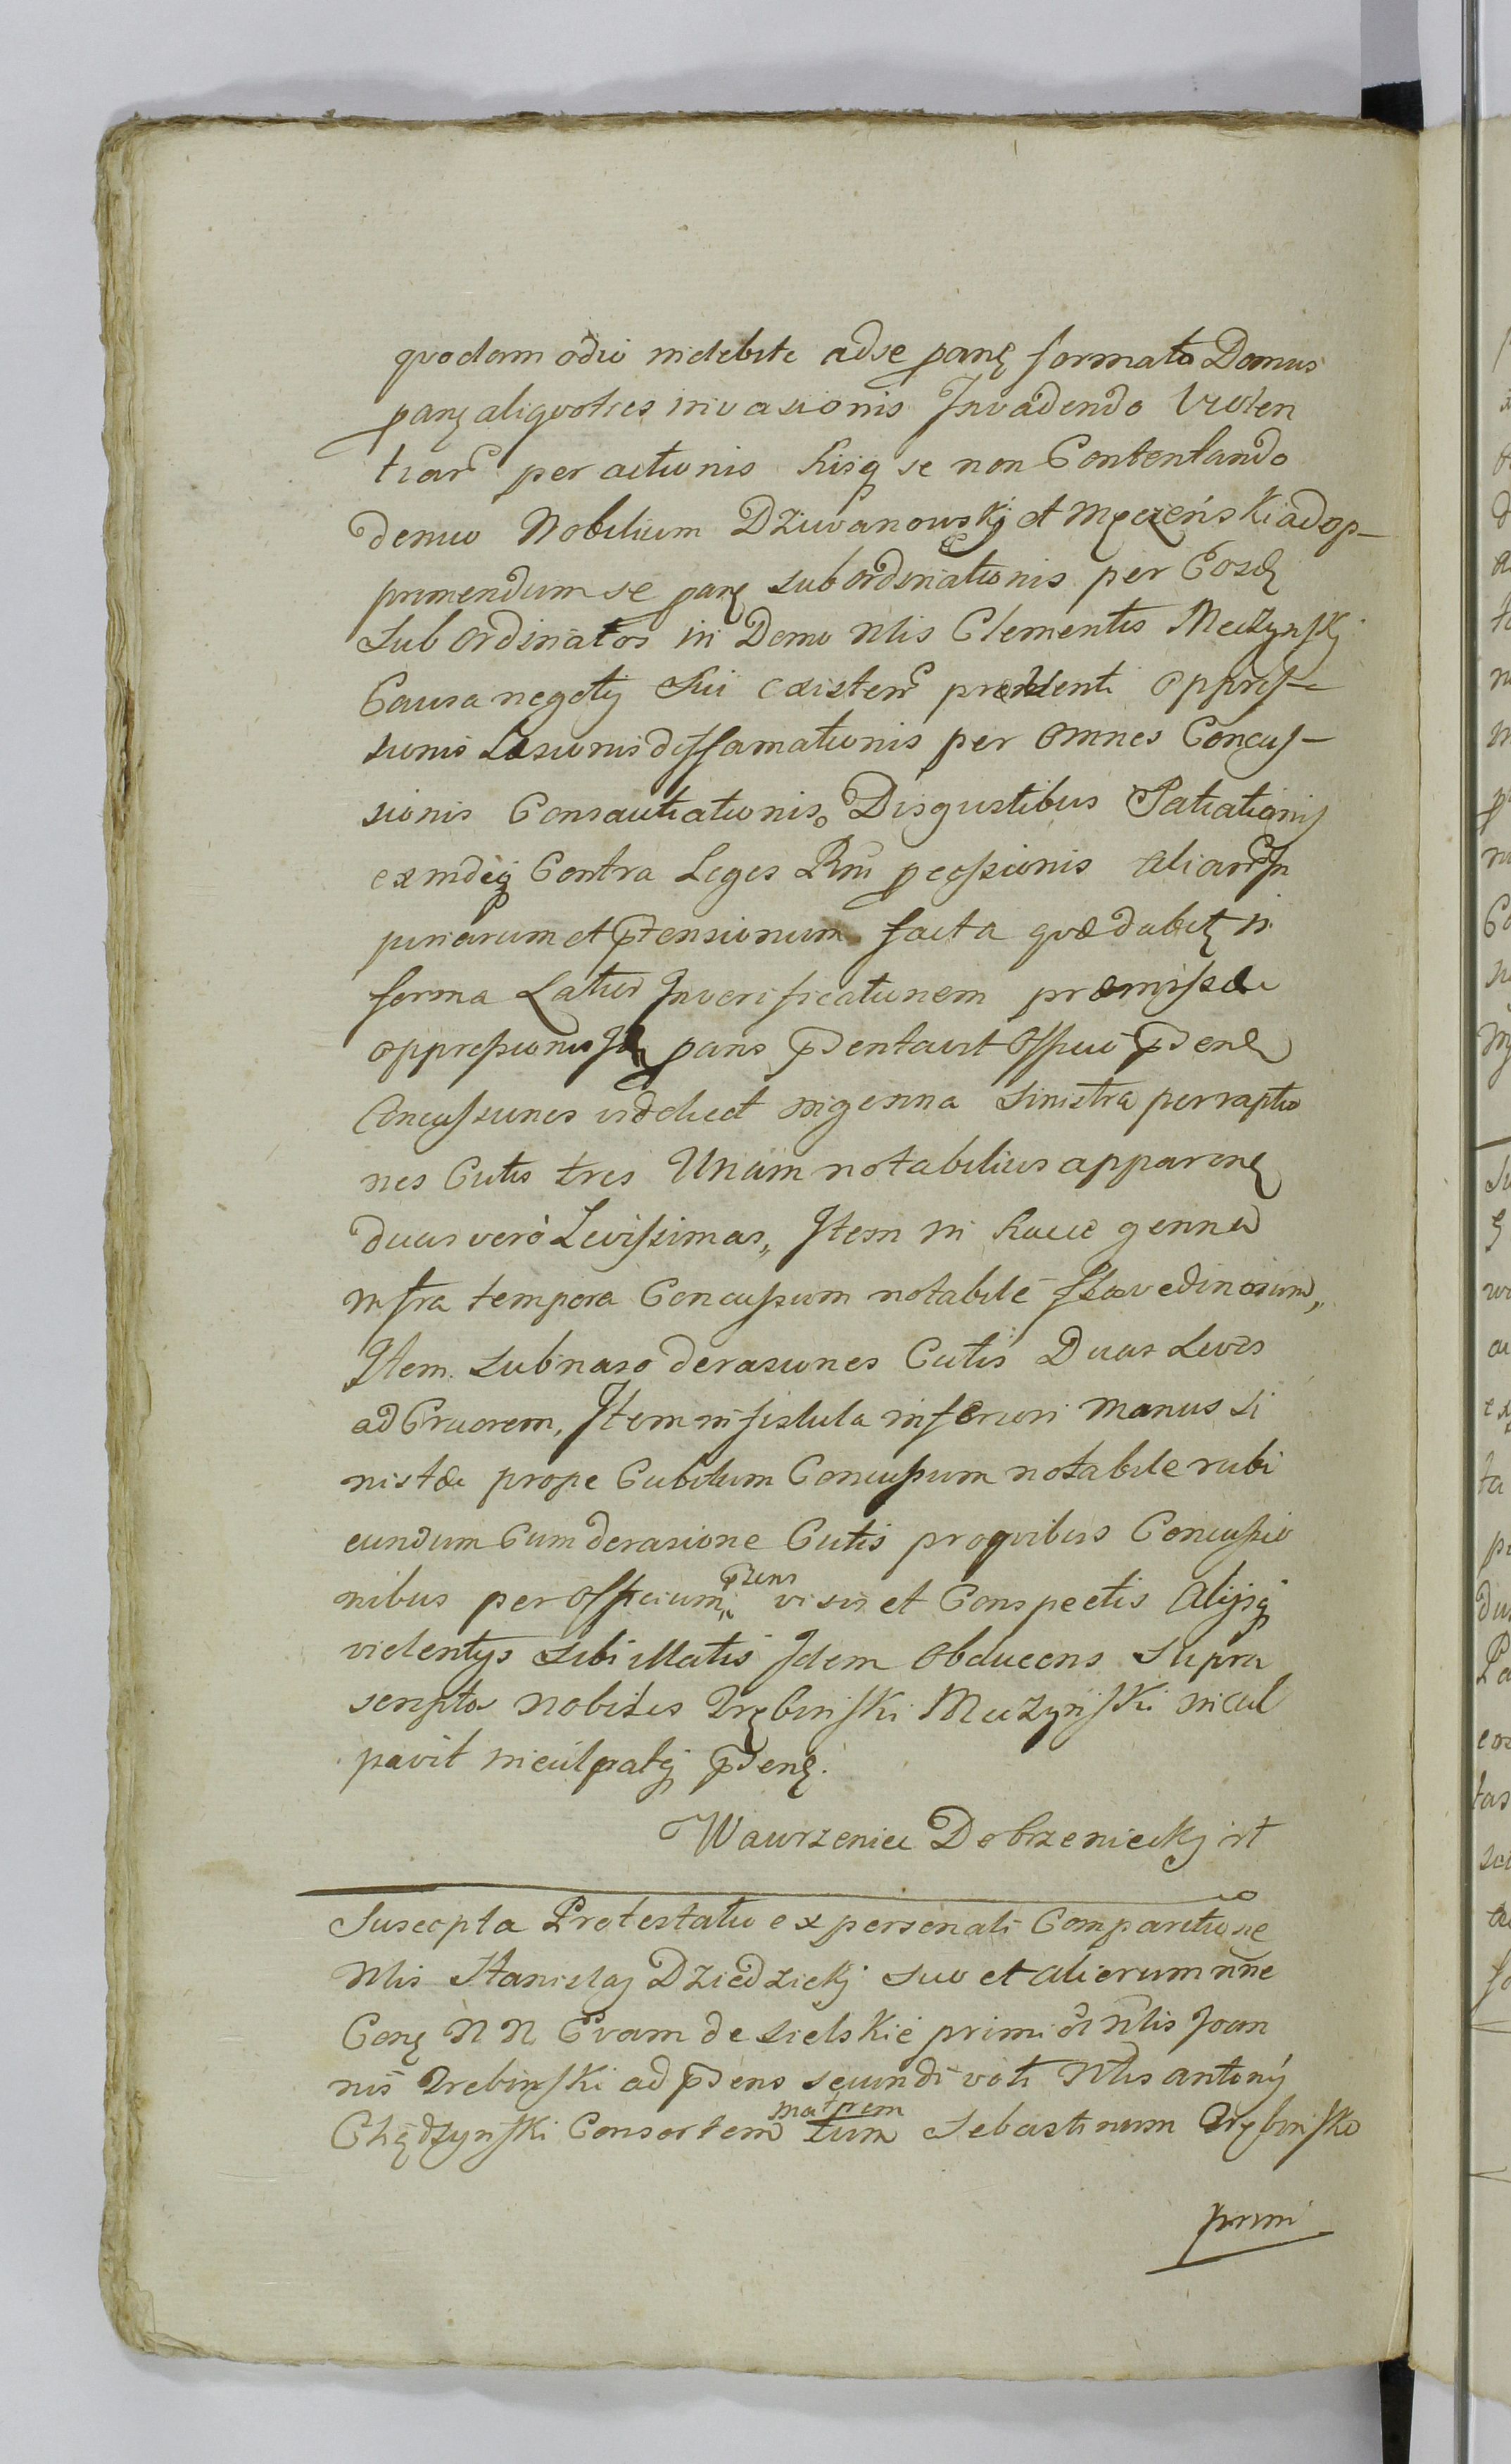 quodam odio indebite ad se panę formato Domus
panę aliquoties invasionis Invadendo Violen
tiar peractionis hisq se non Contentando
denuo Nobilium Dziwanowskj et Męczeński ad op-
primendum se panę subordinationis per Eosdę
Subordinatos in Domo Nlis Clementis Meczynskj
Causa negotij Sui existen præsenti oppres-
sionis Læsionis diffamationis per omnes Concus-
sionis Consautiationis Disgustibus Satiationis
exindeq Contra Leges Rni pcessionis aliar In
juriarum et ptensionum facta quæ dabitę in
forma Latiori In verificationem præmissæ
oppressionis Idę pans pdentavit Officio pdenę
Concussiones videlicet in genna sinistra perraptio
nes Cutis tres Unam notabilius apparenę
duas verò Levissimas,, Item in hacce genna
infra tempora Concussum notabile flavedinosum,,
Item sub naso derasiones Cutis Duas Leves
ad Cruorem, Item in fistula inferiori manus si
nistræ prope Cubitum Concussum notabile rubi
cundum Cum derasione Cutis pro quibus Concussio
nibus per Officium pzens visis et Conspectis Alijsq
violentijs sibi illatis Idem obducens supra
scriptos Nobiles Trębinski Meczyński incul
pavit inculpatq pdenę.
Wawrzeniec Dobrzenieckj rt
Suscepta Protestatio ex personali Comparitione
Nlis Stanislaj Dziedzickj suo et aliorum nne
Conę N N Evam de Sielskie primi ỏ Nlis Joan
nis Trebinski ad pdens secundi voti Nlis Antonÿ
Chędzynski Consortem matrem tum Sebastinum Trębinsko
primi